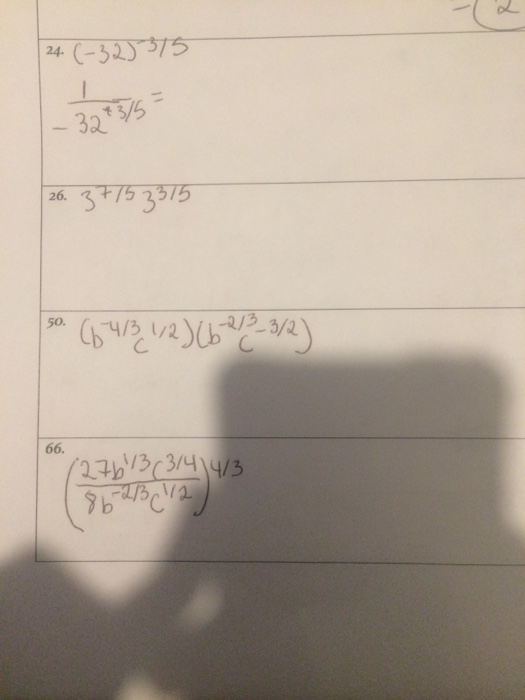 = 2
24. (-32)^-3/5
1/-32^+3/5 =
26. 3^7/5 3^3/5
50. (b^-4/3 c^1/2)(b^-2/3 c^-3/2)
66. (27b^1/3 c^3/4 / 8b^-2/3 c^1/2)^4/3